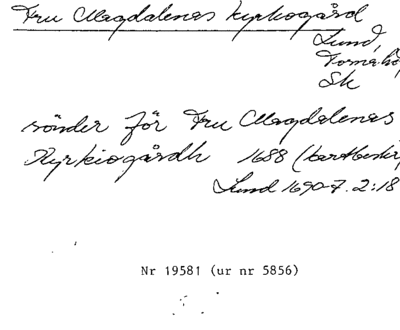 Fru Magdalenas kyrkogård
Lund,
Torna hd
Sk
sönder för Fru Magdalenas
Kyrkiogårdh 1688 (kartbeskr
Lund 1690-7. 2:18
Nr 19581 (ur nr 5856)